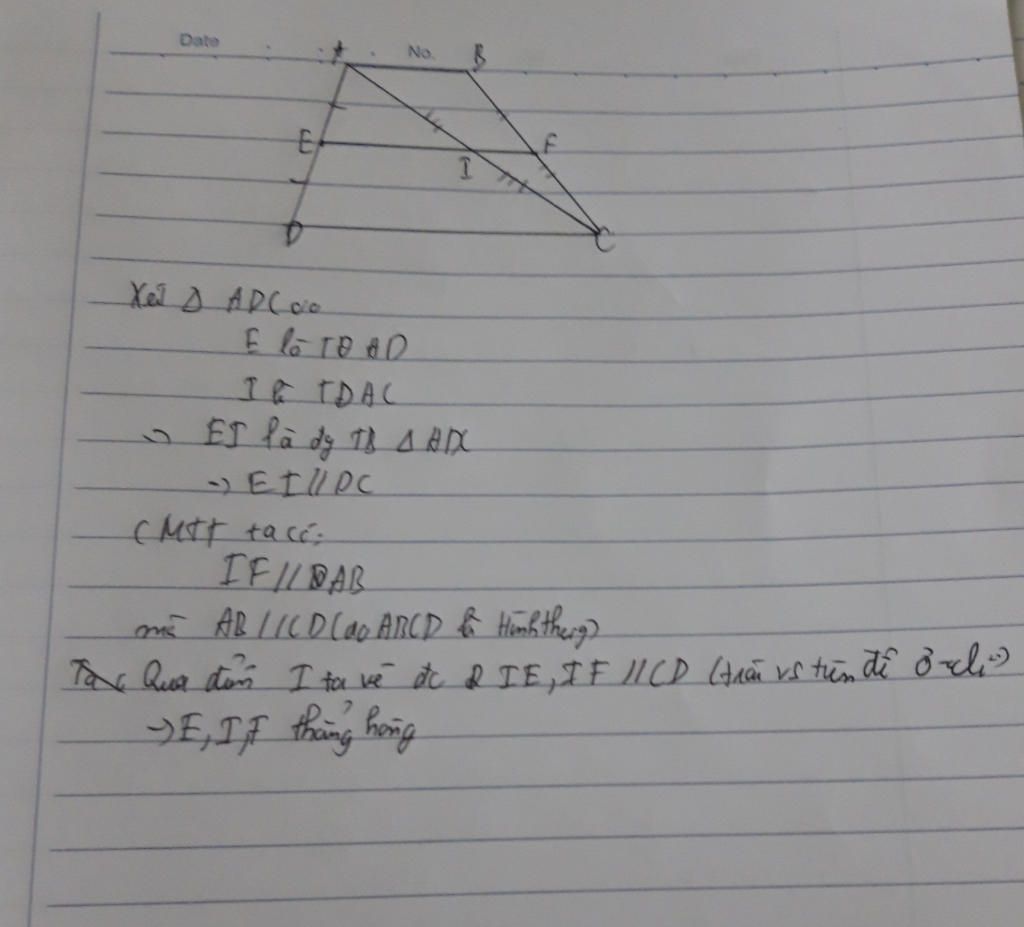 Date No.
A B
E F
I
D C
Xét Δ ADC có
E là TĐ AD
I là TĐ AC
=> EI là đg TB Δ ADC
-> EI // DC
CMTT ta có:
IF // AB
mà AB // CD (do ABCD là Hình thang)
Qua điểm I ta vẽ đc 2 IE, IF // CD (trái vs tiên đề Ơ-clit)
-> E, I, F thẳng hàng